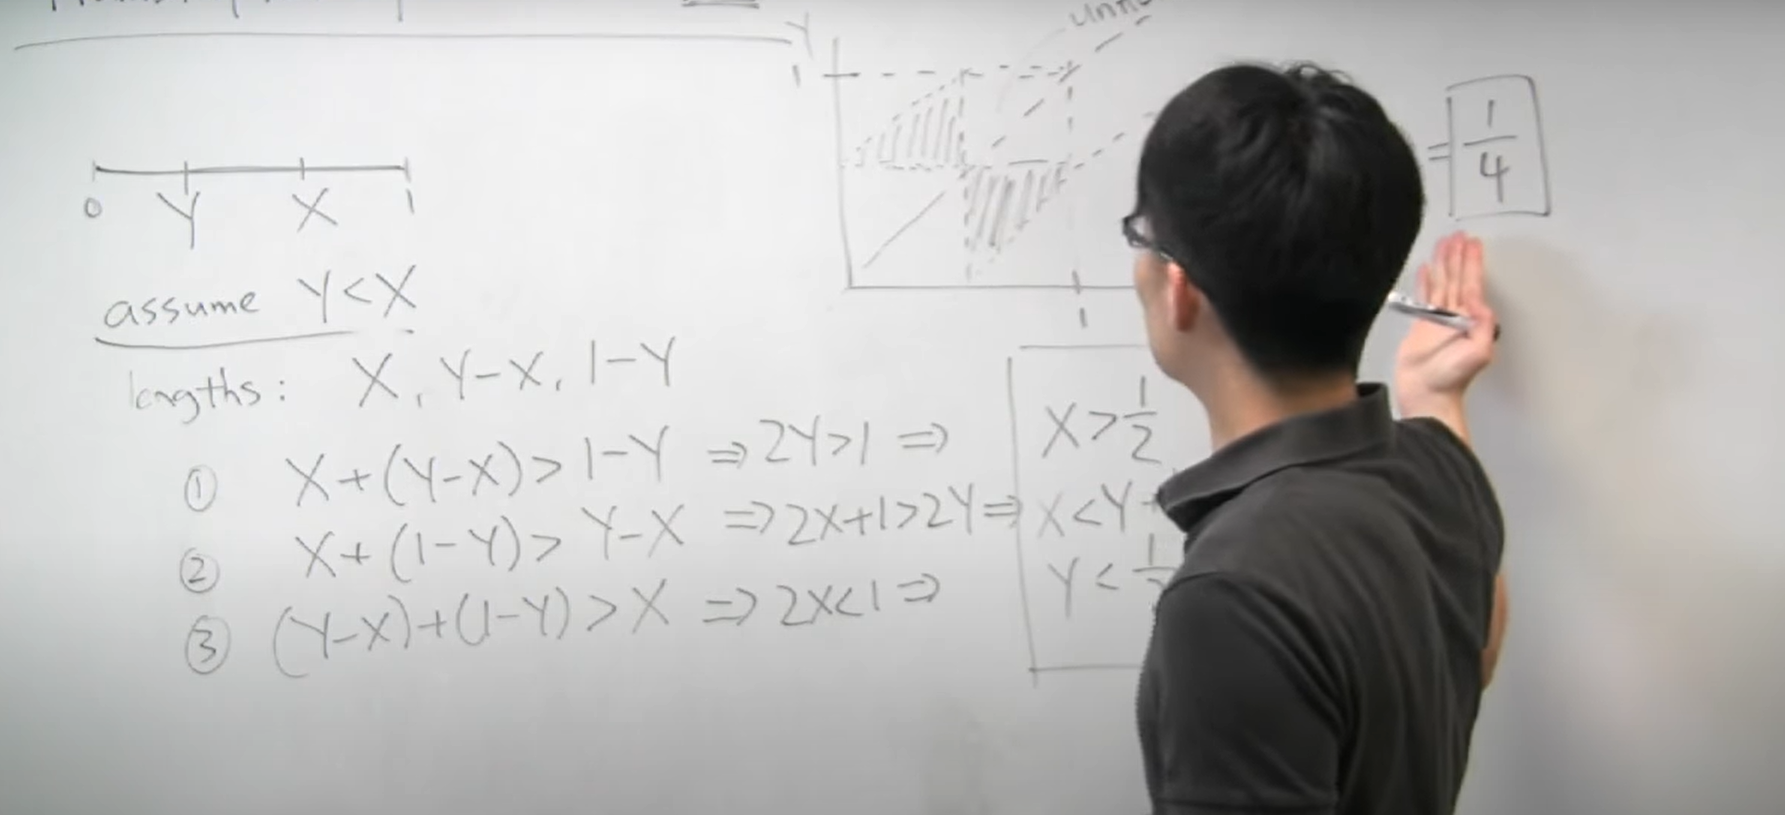 0 Y X 1
assume Y<X
lengths: X, Y-X, 1-Y
① X+(Y-X)>1-Y ⇒2Y>1 ⇒
② X+(1-Y)> Y-X ⇒2X+1>2Y⇒
③ (Y-X)+(1-Y)>X ⇒2X<1⇒
Y
1
1
= 1/4
X>1/2
X<Y+
Y<